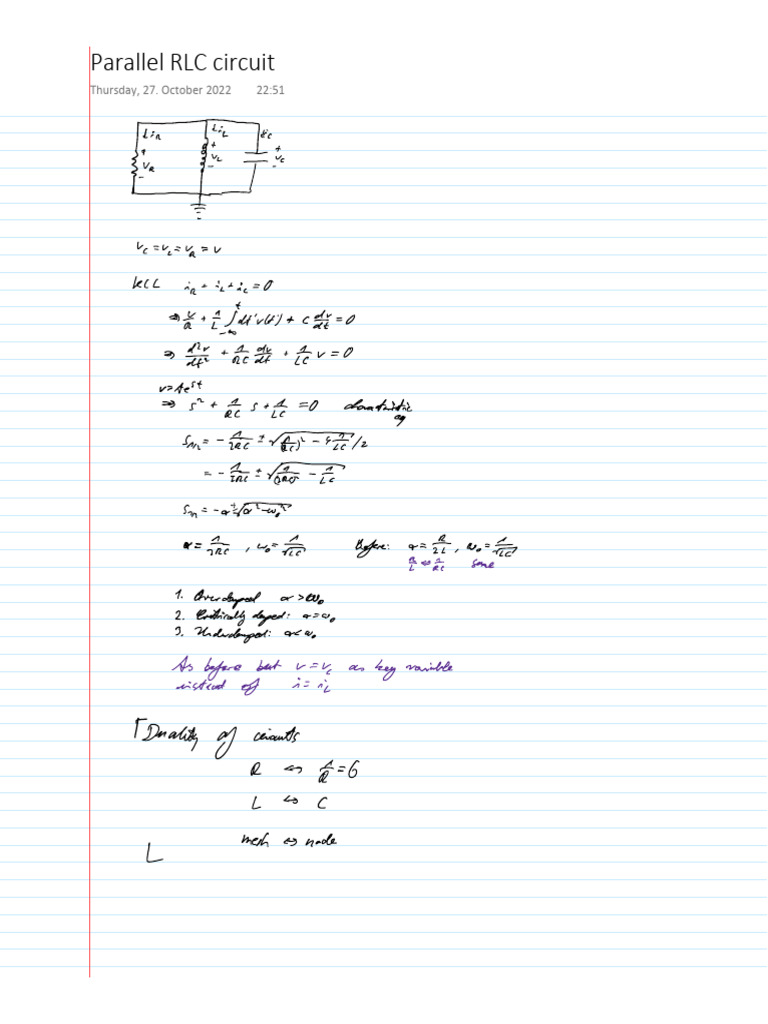 Parallel RLC circuit
Thursday, 27. October 2022 22:51
↓i_R ↓i_L ↓i_C
+ v_R − + v_L − + v_C −
v_C = v_L = v_R = v
KCL i_R + i_L + i_C = 0
⇒ v/R + 1/L ∫_{-∞}^{t} dt' v(t') + C dv/dt = 0
⇒ d²v/dt² + 1/RC dv/dt + 1/LC v = 0
v = Ae^{st}
⇒ s² + 1/RC s + 1/LC = 0 characteristic eq
s_{1/2} = − 1/2RC ± √((1/RC)² − 4 1/LC) /2
= − 1/2RC ± √(1/(2RC)² − 1/LC)
s_{1/2} = −α ± √(α² − ω₀²)
α = 1/2RC , ω₀ = 1/√LC Before: α = R/2L , ω₀ = 1/√LC
R/L ⇔ 1/RC same
1. Overdamped α > ω₀
2. Critically damped: α = ω₀
3. Underdamped: α < ω₀
As before but v = v_C as key variable
instead of i = i_L
Duality of circuits
R ⇔ 1/R = G
L ⇔ C
mesh ⇔ node